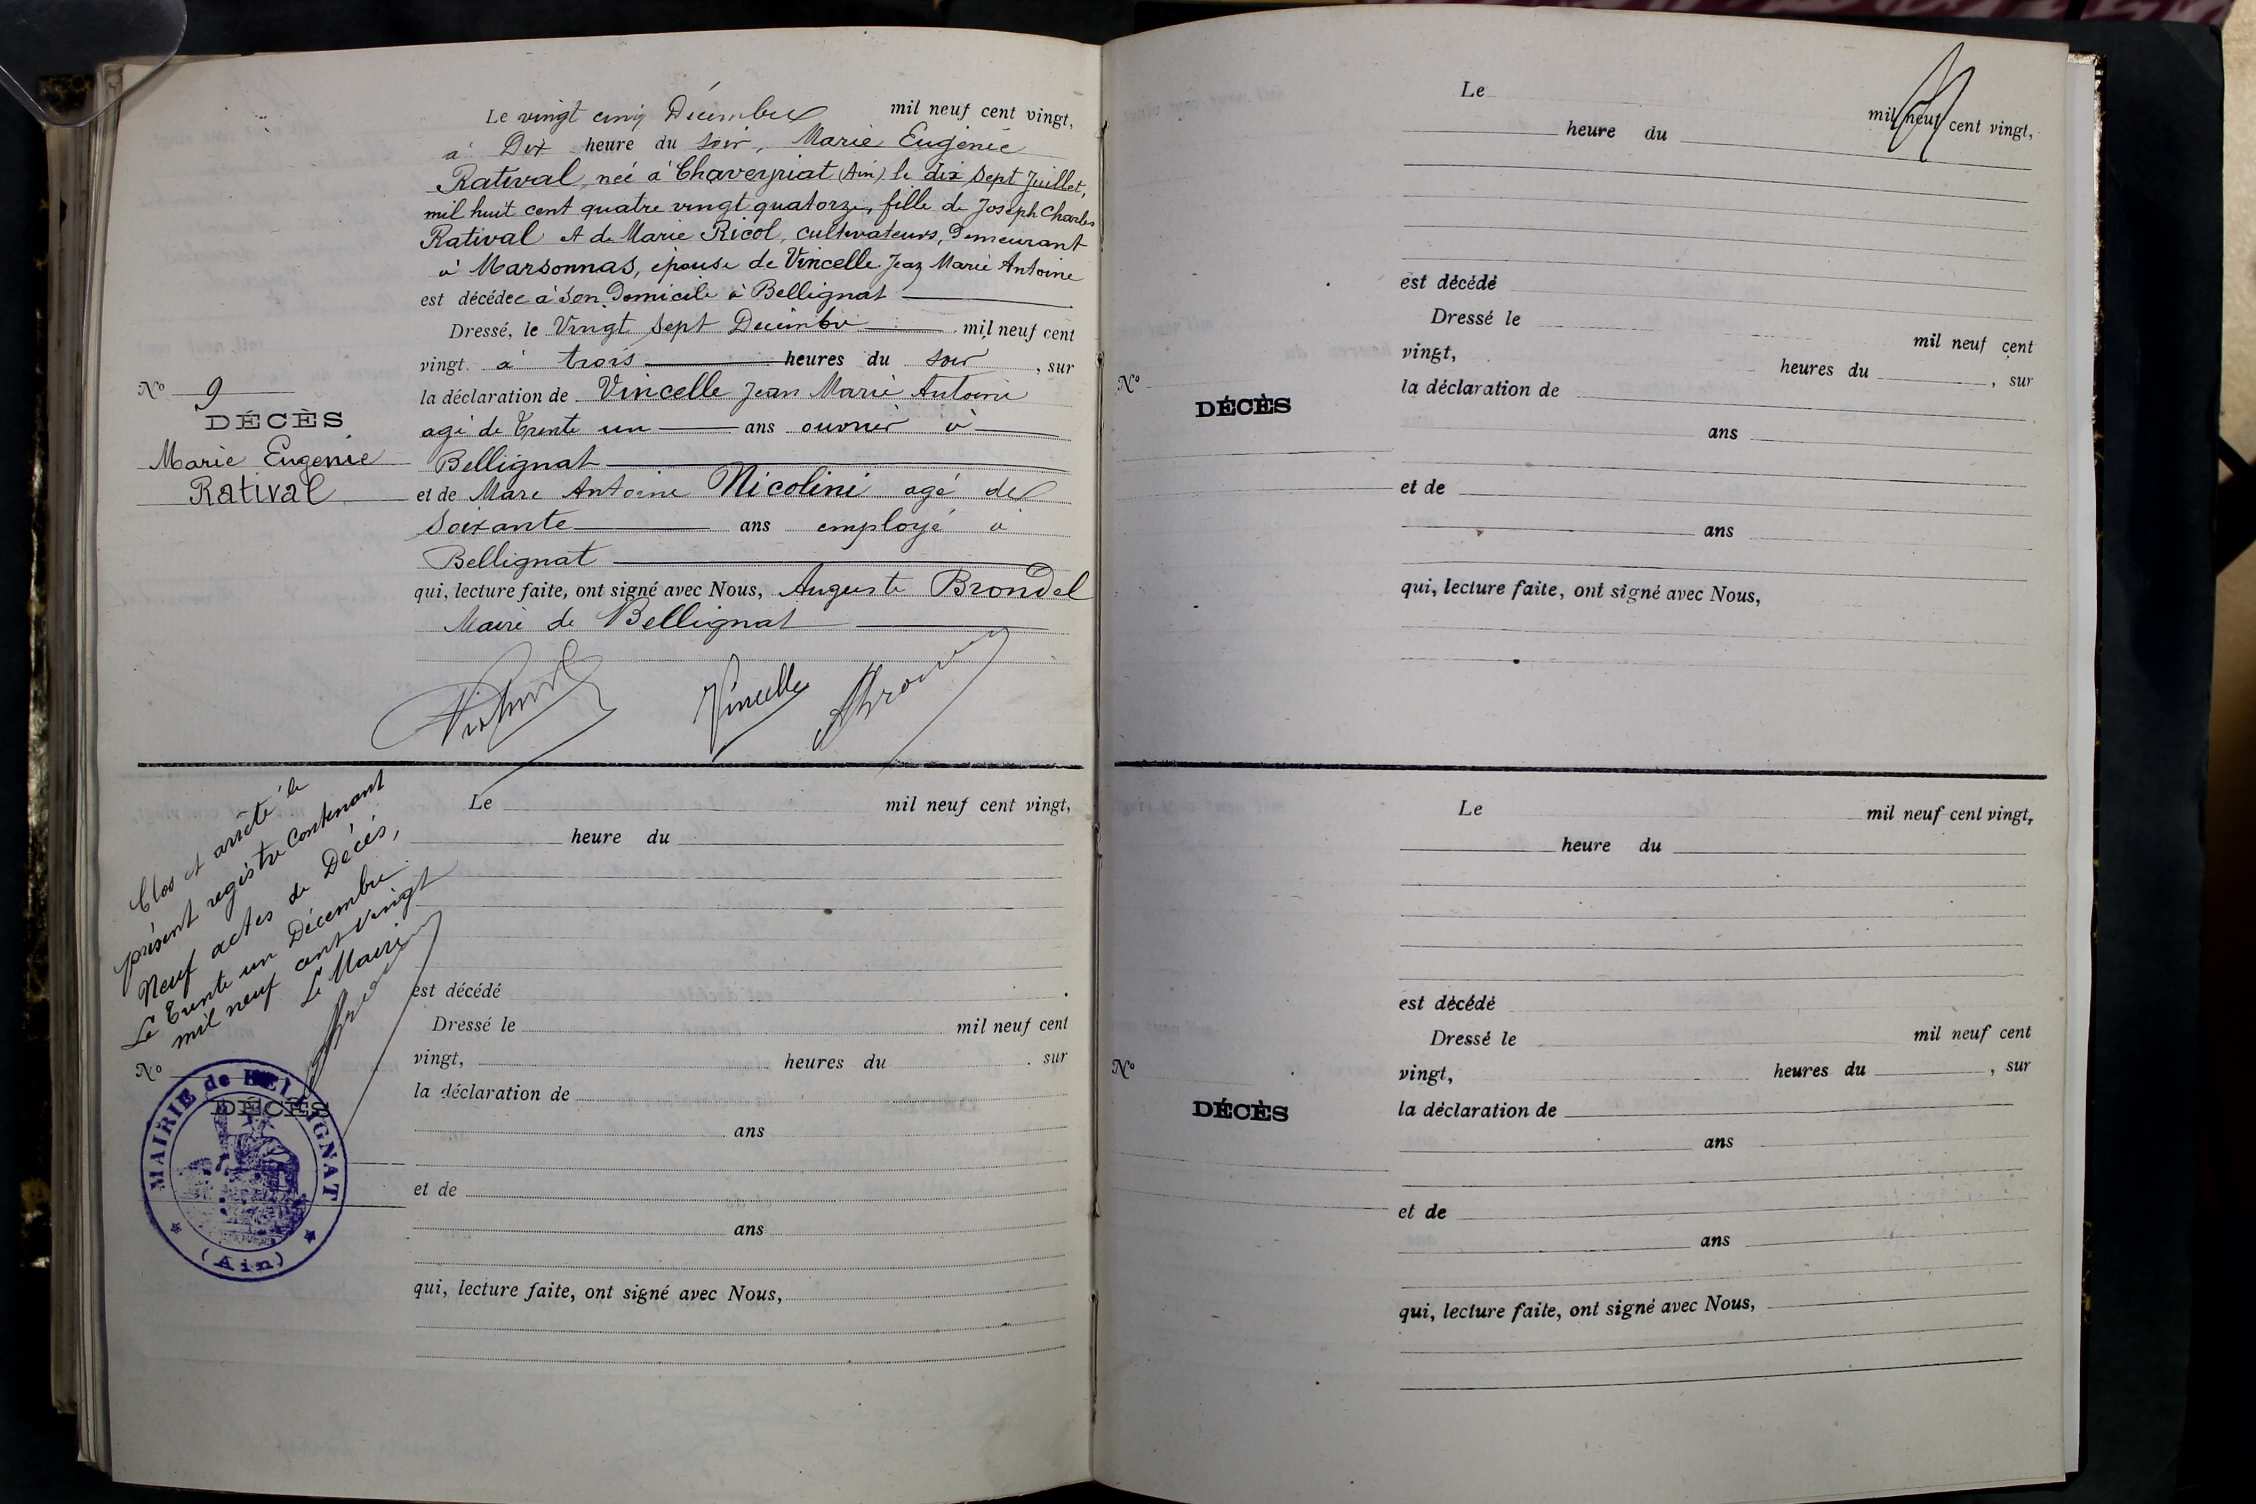 Le vingt cinq Décembre mil neuf cent vingt,
à Dix heure du soir, Marie Eugénie
Ratival, neé à Chaveyriat (Ain) le dix sept Juillet,
mil huit cent quatre vingt quatorze, fille de Joseph Charles
Ratival et de Marie Ricol, cultivateurs, Demeurant
à Marsonnas, épouse de Vincelle Jean Marie Antoine
est décédée à son Domicile à Bellignat
Dressé, le Vingt Sept Décembre mil neuf cent
vingt à trois heures du soir, sur
la déclaration de Vincelle Jean Marie Antoine
agé de Trente un ans ouvrier à
Bellignat
et de Marc Antoine Nicolini agé de
Soixante ans employé à
Bellignat
qui, lecture faite, ont signé avec Nous, Auguste Brondel
Maire de Bellignat
Vincelle
No 9
DÉCÈS
Marie Eugenie
Ratival
Clos et arrêté le
présent registre contenant
Neuf actes de Décès,
Le Trente un Décembre
mil neuf cent vingt
Le Maire
No
DÉCÈS
MAIRIE de BELLIGNAT
(Ain)
Le mil neuf cent vingt,
heure du
est décédé
Dressé le mil neuf cent
vingt, heures du . sur
la déclaration de
ans
et de
ans
qui, lecture faite, ont signé avec Nous,
Le mil neuf cent vingt,
heure du
est décédé
Dressé le mil neuf cent
vingt, heures du , sur
No
DÉCÈS
la déclaration de
ans
et de
ans
qui, lecture faite, ont signé avec Nous,
Le mil neuf cent vingt,
heure du
est décédé
Dressé le mil neuf cent
vingt, heures du , sur
No
DÉCÈS
la déclaration de
ans
et de
ans
qui, lecture faite, ont signé avec Nous,